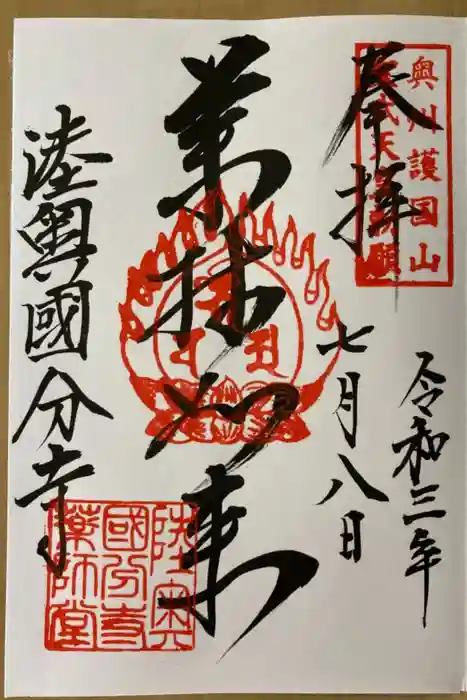 奉拝
奥州護国山
聖武天皇勅願
令和三年
七月八日
薬師如来
陸奥國分寺
陸奥
國分寺
薬師堂